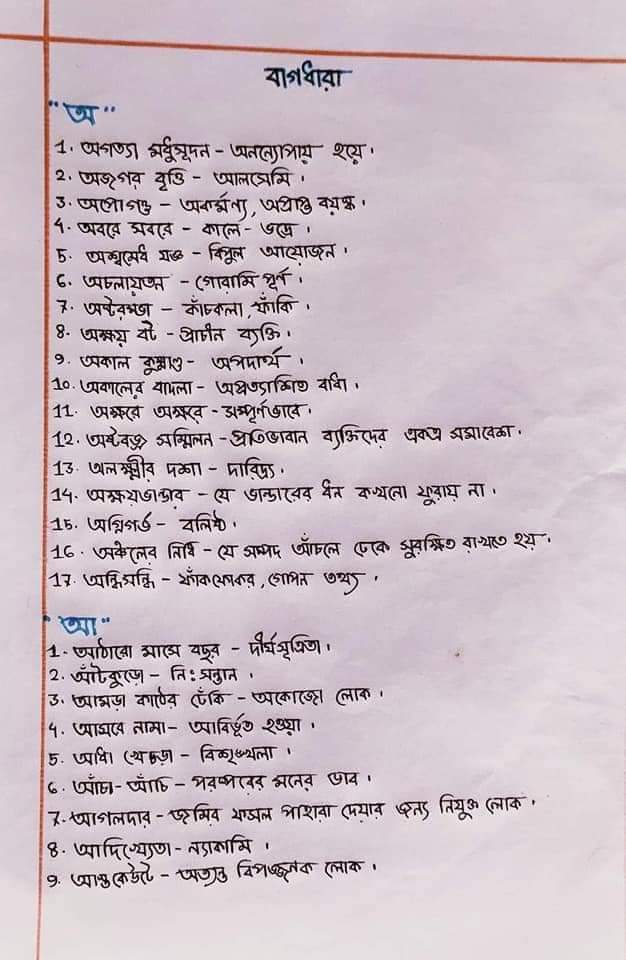 বাগধারা
"অ"
1. অগত্যা মধুসূদন - অনন্যোপায় হয়ে।
2. অজগর বৃত্তি - আলসেমি।
3. অপোগণ্ড - অকর্মণ্য, অপ্রাপ্ত বয়স্ক।
4. অবরে সবরে - কালে - ভদ্রে।
5. অশ্বমেধ যজ্ঞ - বিপুল আয়োজন।
6. অচলায়তন - গোরামি পূর্ণ।
7. অষ্টরম্ভা - কাঁচকলা, ফাঁকি।
8. অক্ষয় বট - প্রাচীন ব্যক্তি।
9. অকাল কুষ্মাণ্ড - অপদার্থ।
10. অকালের বাদলা - অপ্রত্যাশিত বাধা।
11. অক্ষরে অক্ষরে - সম্পূর্ণভাবে।
12. অষ্টবজ্র সম্মিলন - প্রতিভাবান ব্যক্তিদের একত্র সমাবেশ।
13. অলক্ষ্মীর দশা - দারিদ্র্য।
14. অক্ষয়ভান্ডার - যে ভান্ডারের ধন কখনো ফুরায় না।
15. অগ্নিগর্ভ - বলিষ্ঠ।
16. অঞ্চলের নিধি - যে সম্পদ আঁচলে ঢেকে সুরক্ষিত রাখতে হয়।
17. অন্ধিসন্ধি - ফাঁকফোকর, গোপন তথ্য।
"আ"
1. আঠারো মাসে বছর - দীর্ঘসূত্রিতা।
2. আঁটকুড়ো - নিঃসন্তান।
3. আমড়া কাঠের ঢেঁকি - অকেজো লোক।
4. আসরে নামা - আবির্ভূত হওয়া।
5. আধা খেচড়া - বিশৃঙ্খলা।
6. আঁচা-আঁচি - পরস্পরের মনের ভাব।
7. আগলদার - জমির ফসল পাহারা দেয়ার জন্য নিযুক্ত লোক।
8. আদিখ্যেতা - ন্যাকামি।
9. আস্তকেউটে - অত্যন্ত বিপজ্জনক লোক।